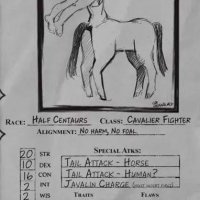 Race: Half Centaurs Class: Cavalier Fighter
Alignment: No harm, No foal.
Special Atks:
20 STR Tail Attack - Horse
10 DEX Tail Attack - Human?
16 CON Javalin Charge
2 INT
2 WIS Traits Flaws